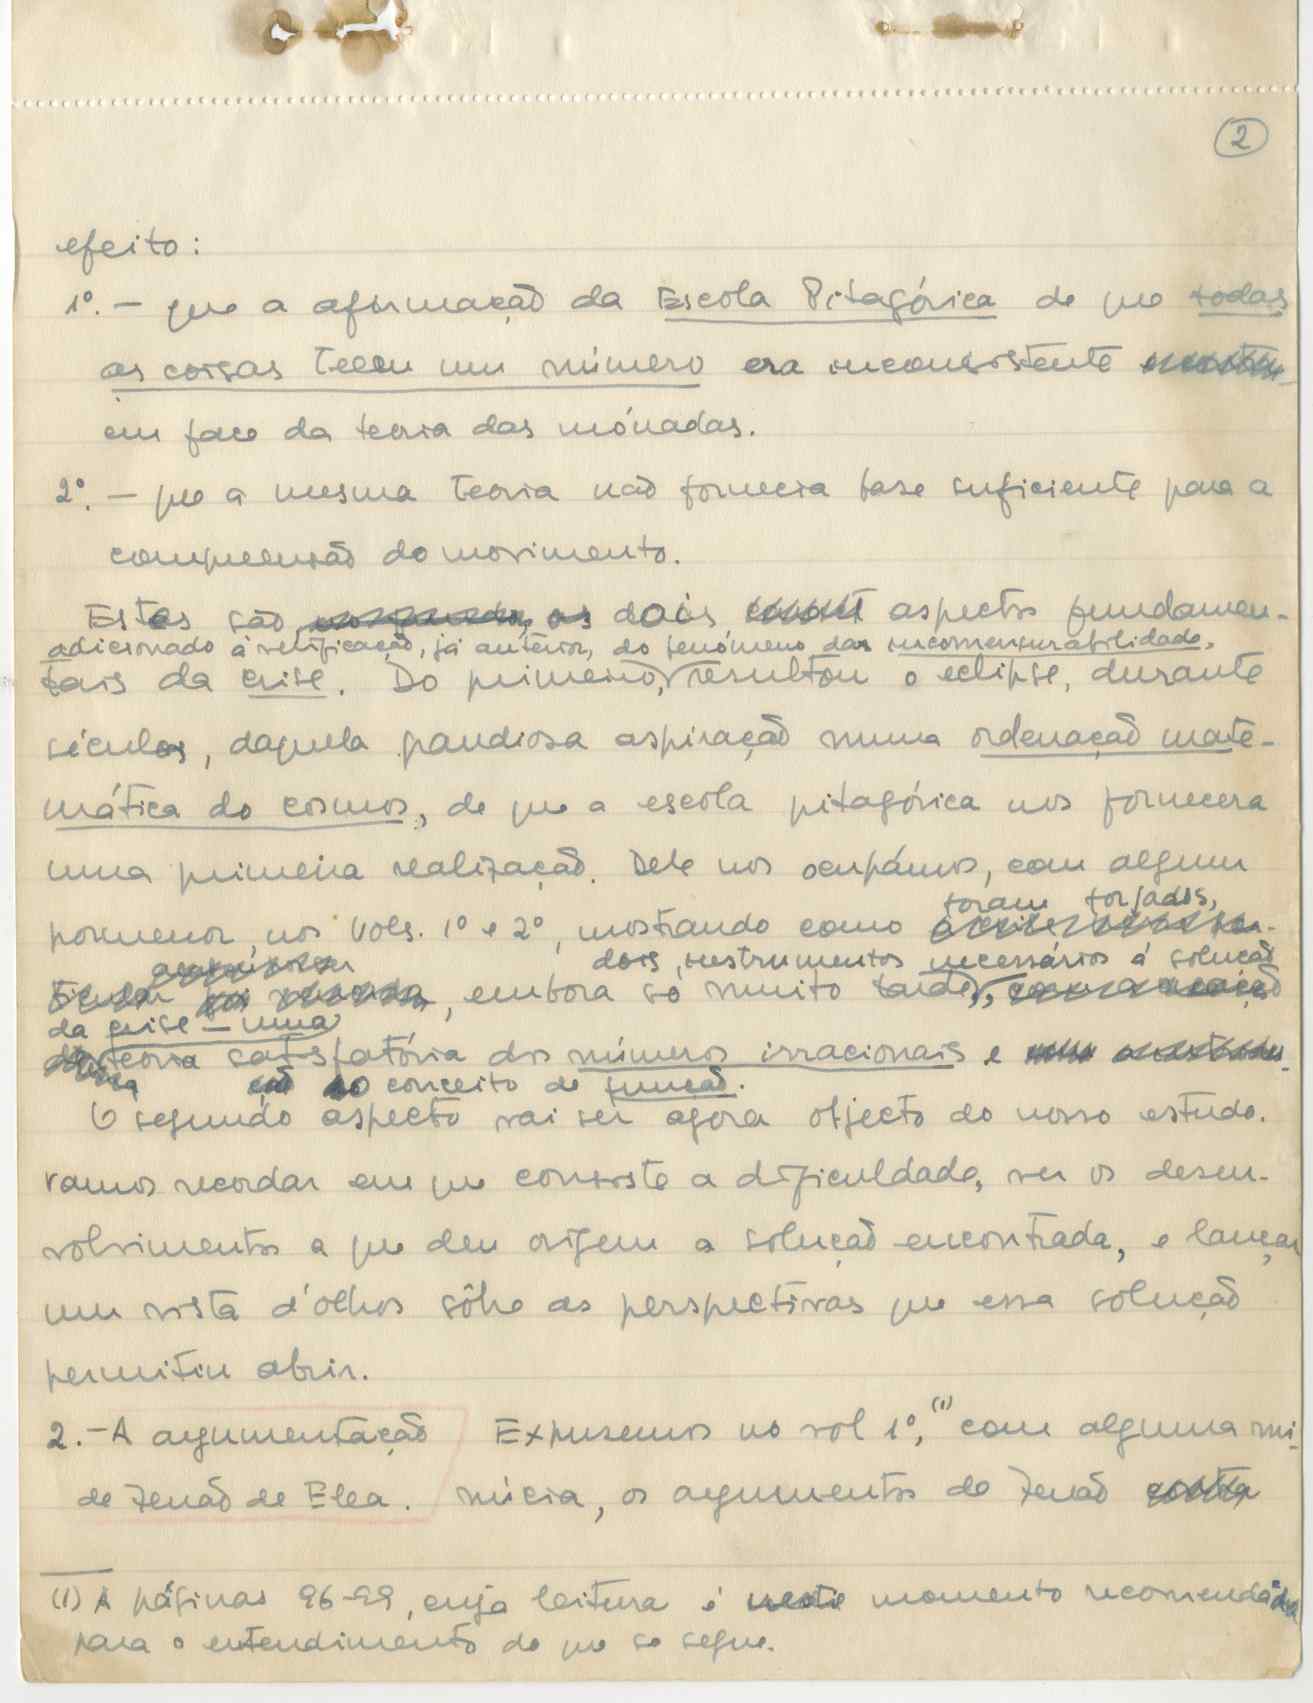 2
efeito:
1º. — que a afirmação da Escola Pitagórica de que todas
as coisas teem um número era inconsistente
em face da teoria das mónadas.
2º. — que a mesma teoria não fornecia base suficiente para a
compreensão do movimento.
Estes são dois aspectos fundamen-
adicionado à retificação, já anterior, do fenómeno das incomensurabilidade,
tais da crise. Do primeiro, resultou o eclipse, durante
séculos, daquela grandiosa aspiração numa ordenação mate-
mática do cosmos, de que a escola pitagórica nos fornecera
uma primeira realização. Dele nos ocupámos, com algum
foram forjados,
pormenor, nos Vols. 1º e 2º, mostrando como
dois instrumentos necessários á solução
, embora só muito tarde,
da crise — uma
teoria satisfatória dos números irracionais e
o conceito de função.
O segundo aspecto vai ser agora objecto do nosso estudo.
Vamos recordar em que consiste a dificuldade, ver os desen-
volvimentos a que deu origem a solução encontrada, e lançar
um vista d'olhos sôbre as perspectivas que essa solução
permitiu abrir.
2. — A argumentação Expusemos no vol 1º, (1) com alguma mi-
de Zenão de Elea. núcia, os argumentos de Zenão contra
(1) A páginas 96-99, cuja leitura é neste momento recomendada
para o entendimento do que se segue.